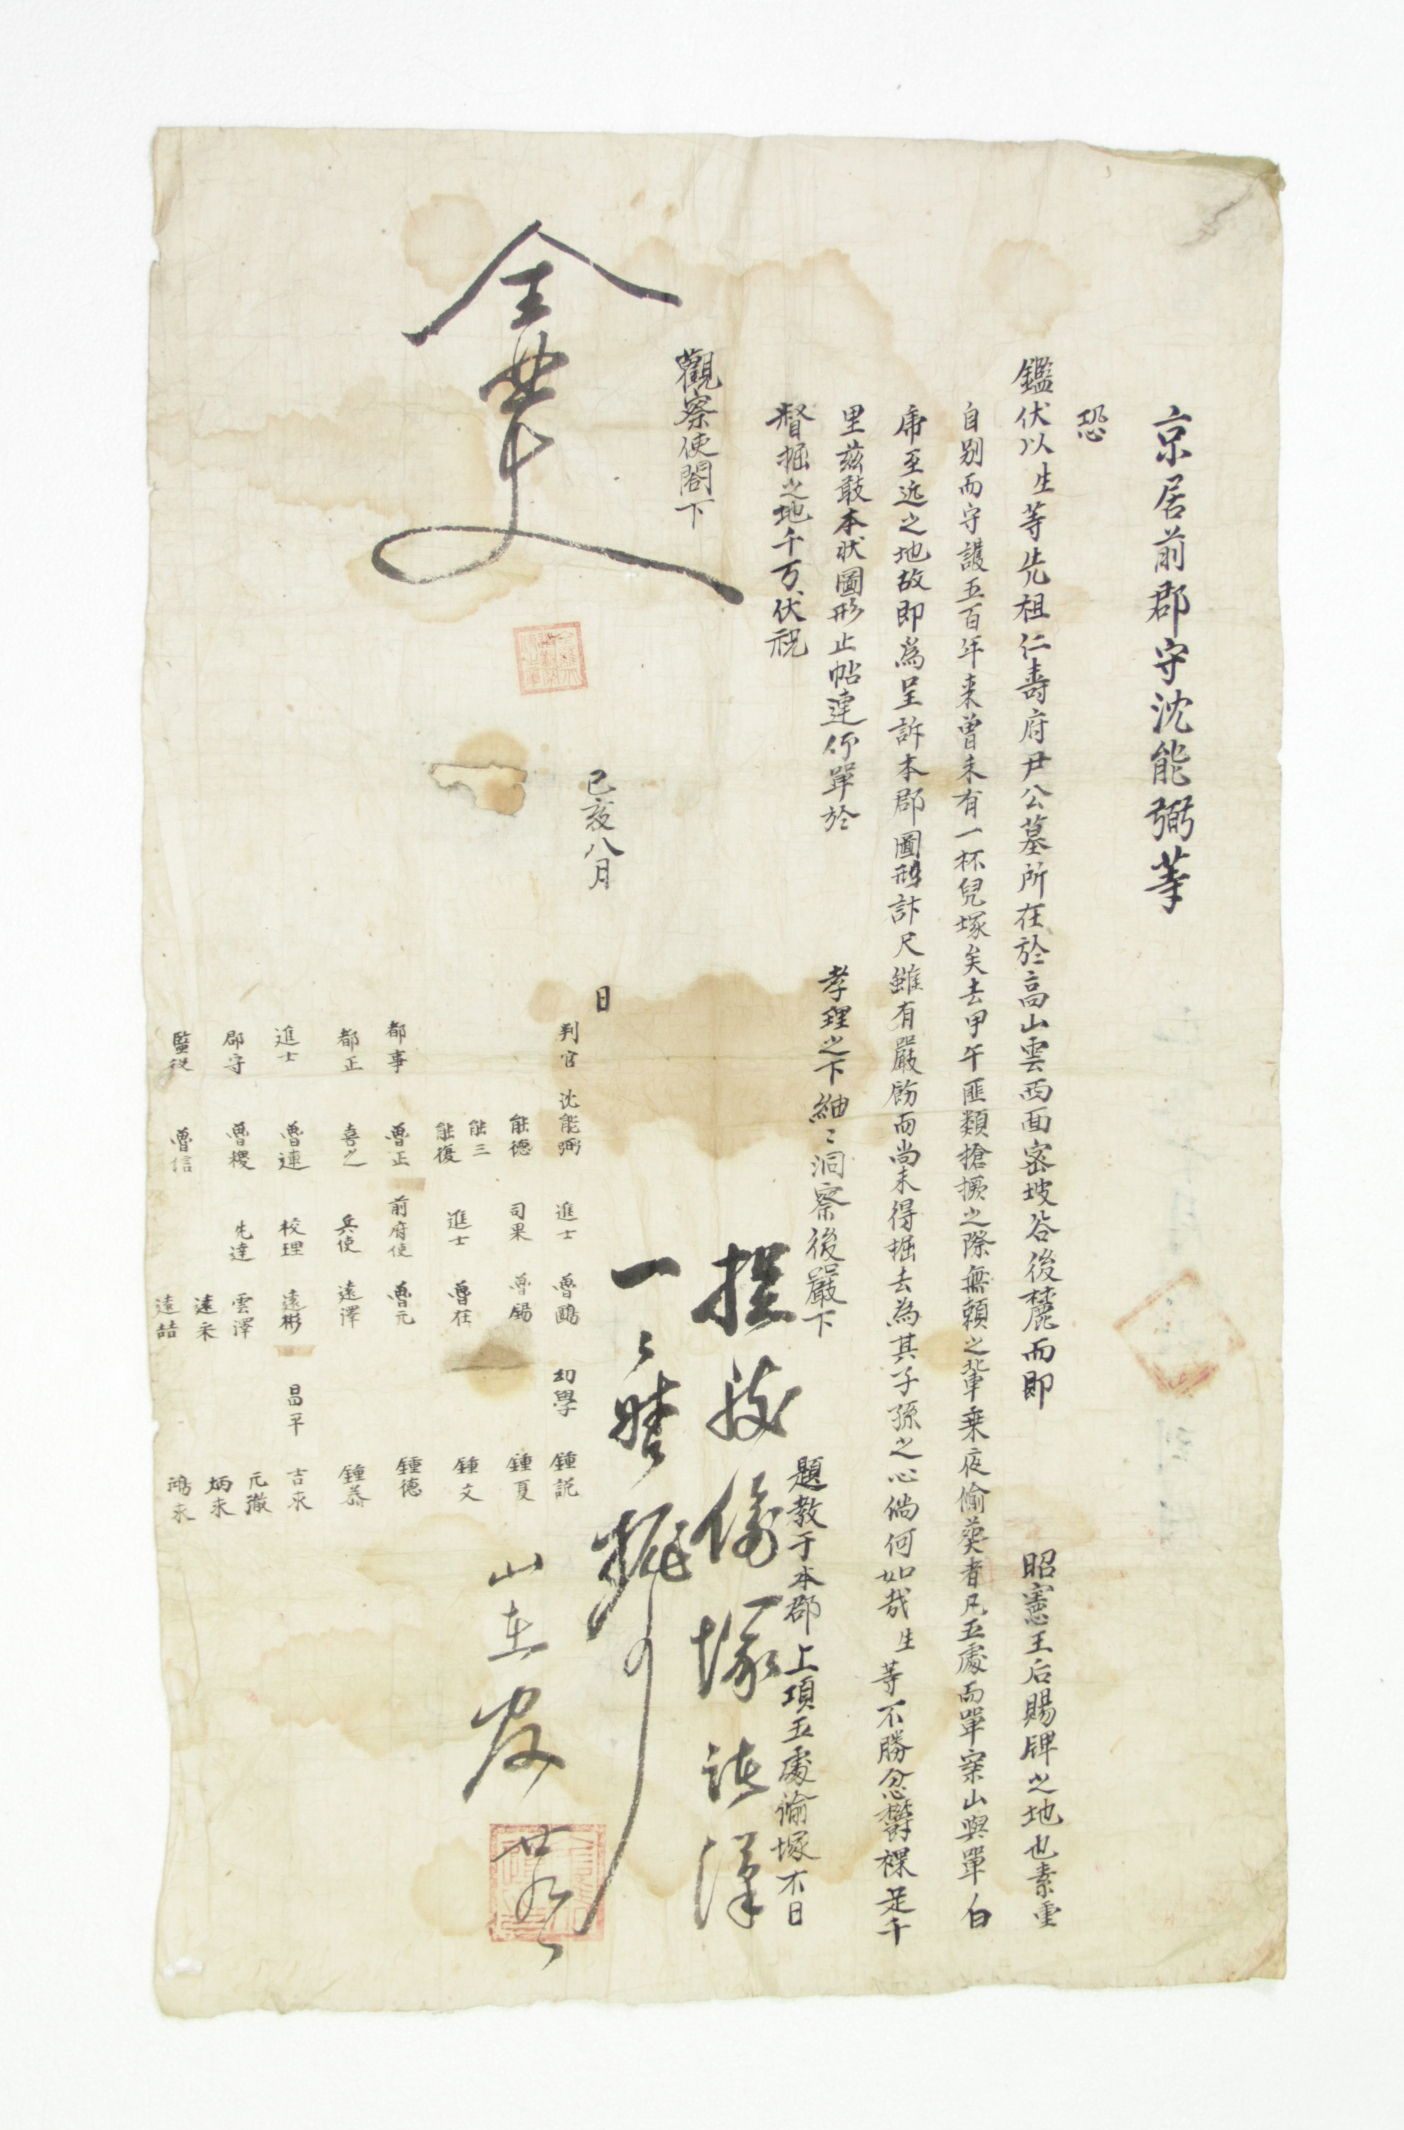 京居前郡守沈能弼等
恐
鑑伏以生等先祖仁壽府尹公墓所在於高山雲西面密坡谷後麓而即
昭憲王后賜牌之地也素重
自别而守護五百年来曾未有一杯兒塚矣去甲午匪類搶攘之際無賴之輩乗夜偷葬者凡五處而單案山與單白
席至近之地故即爲呈訴本郡圖形計尺雖有嚴飭而尚未得掘去為其子孫之心倘何如哉生等不勝忿鬱裸足千
里茲敢本狀圖形止帖連仰單於
孝理之下細〻洞察後嚴下
題教于本郡上項五處偷塚不日
督掘之地千万伏祝
觀察使閤下
己亥八月
日
判官 沈能弼 進士 魯鷗 幼學 鍾託
能德 司果 魯錫 鍾夏
能三
能復 進士 魯在 鍾文
都事 魯正 前府使 魯元 鍾德
都正 喜之 兵使 遠澤 鍾益
進士 魯連 校理 遠彬 昌平 吉求
郡守 魯稷 先達 雲澤 元澈
遠禾 炳求
監役 魯信 遠喆 鴻求
偷塚
山在官